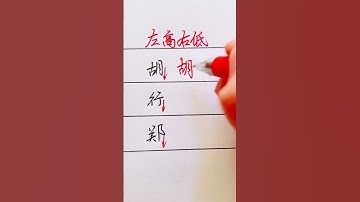 左高右低
胡 胡
行
郑